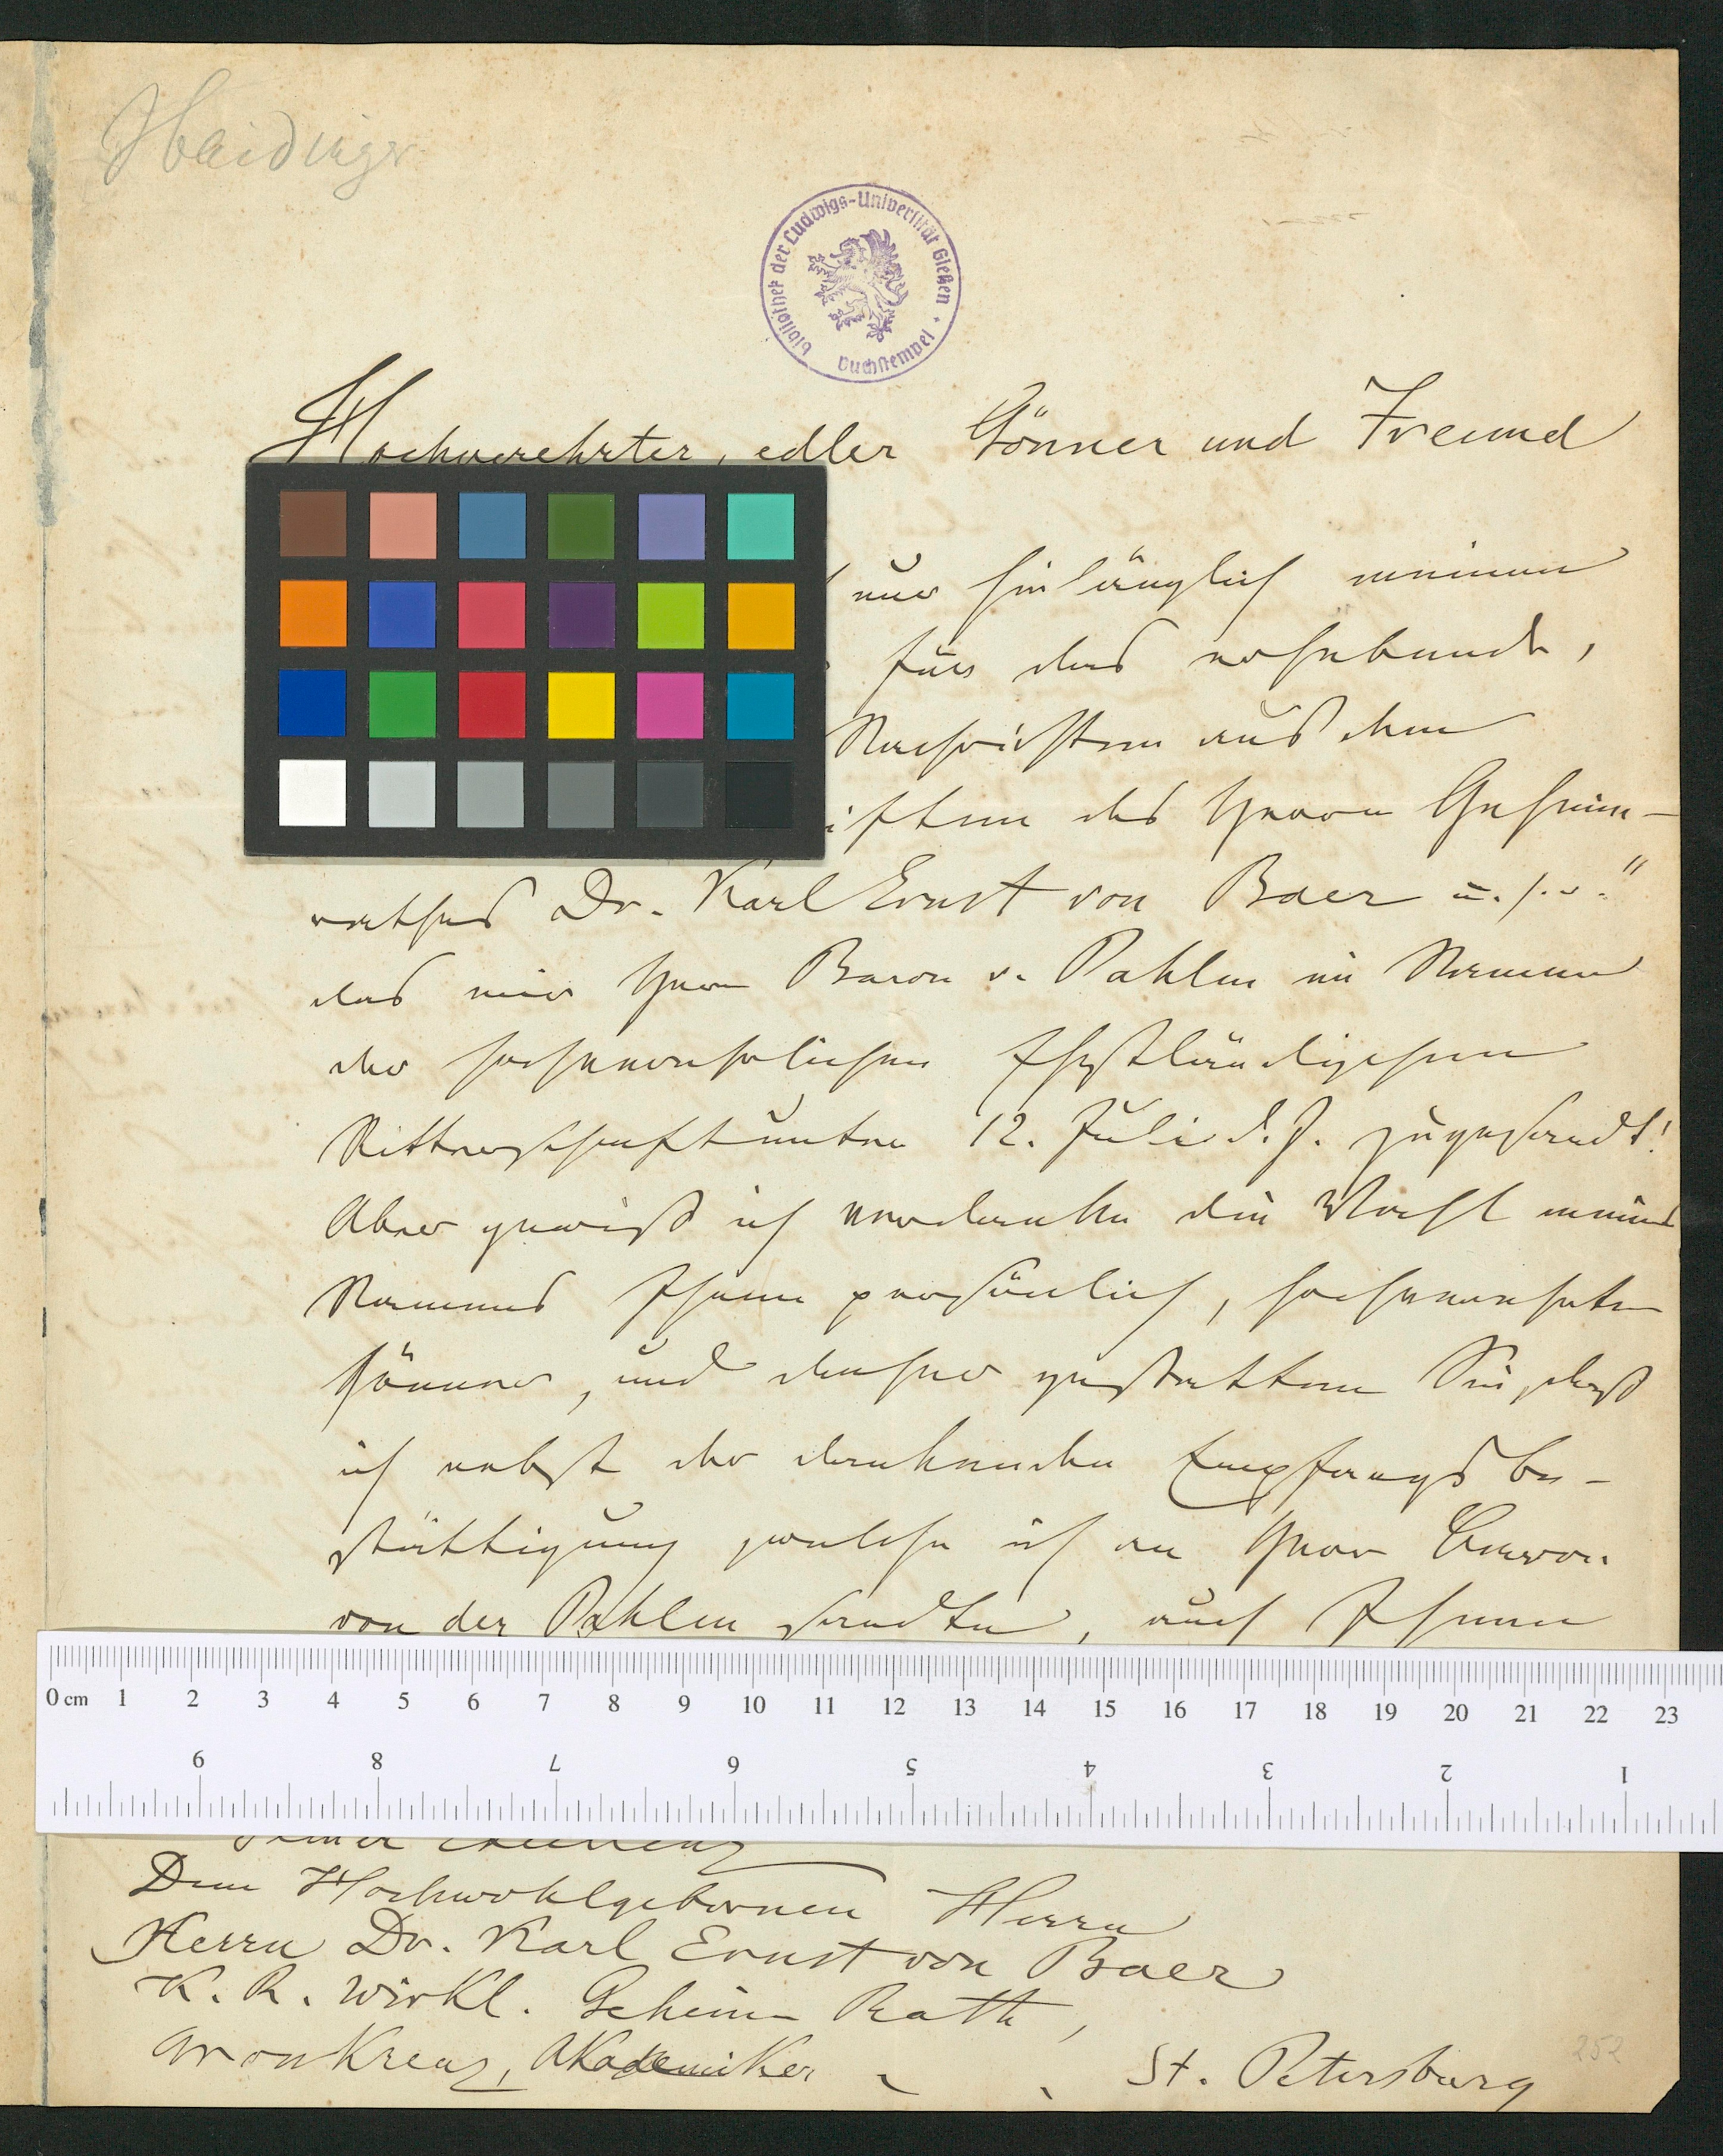 Haidinger
Bibliothek der Ludwigs-Universität Gießen
Buchstempel
Hochverehrter, edler Gönner und Freund
nur hinlänglich meinen
für das erhebende,
Nachrichten aus dem
iften des Herrn Geheim-
rathes Dr. Karl Ernst von Baer u. s. w."
das mir Herr Baron v. Pahlen im Namen
der hochverehrlichen Ehstländischen
Ritterschaft unterm 12. Juli d. J. zugesandt!
Aber gewiß ich verdanke die Wahl meines
Namens Ihnen persönlich, hochverehrter
Gönner, und daher gestatten Sie, daß
ich nebst der dankenden Empfangsbe-
stättigung welche ich an Herrn Baron
von der Pahlen sandte, auch Ihnen
0 cm 1 2 3 4 5 6 7 8 9 10 11 12 13 14 15 16 17 18 19 20 21 22 23
9 8 7 6 5 4 3 2 1
Seiner Excellenz
Dem Hochwohlgebornen Herrn
Herrn Dr. Karl Ernst von Baer
K. R. Wirkl. Geheim Rath,
Akademiker
St. Petersburg
252